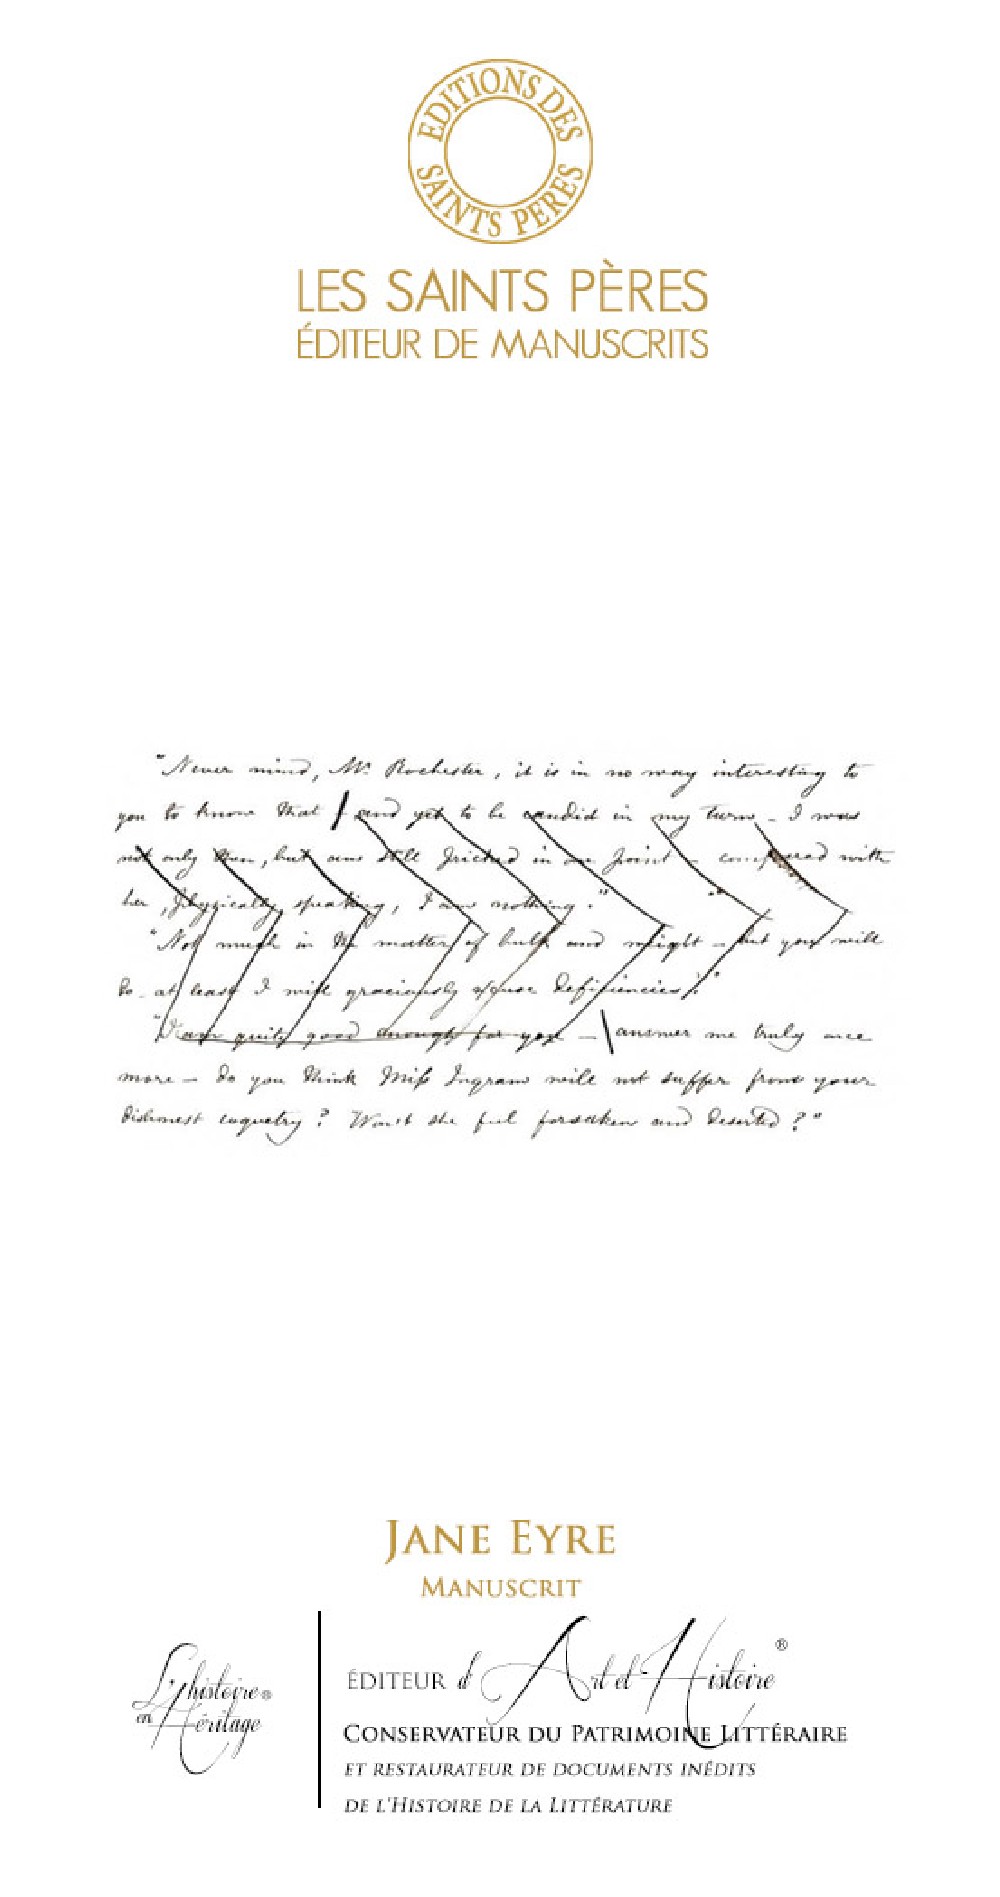 EDITIONS DES
SAINTS PERES
LES SAINTS PÈRES
ÉDITEUR DE MANUSCRITS
"Never mind, Mr. Rochester, it is in no way interesting to
you to know that and yet to be candid in my turn - I was
not only then, but am still pricked in one point - compared with
her, physically speaking, I am nothing."
"Not much in the matter of bulk and might - but you will
do - at least I will graciously excuse deficiencies."
"I am quite good enough for you - answer me truly once
more - do you think Miss Ingram will not suffer from your
dishonest coquetry? Won't she feel forsaken and deserted?"
JANE EYRE
MANUSCRIT
L'histoire®
en Héritage
ÉDITEUR d'Art et Histoire®
CONSERVATEUR DU PATRIMOINE LITTÉRAIRE
ET RESTAURATEUR DE DOCUMENTS INÉDITS
DE L'HISTOIRE DE LA LITTÉRATURE